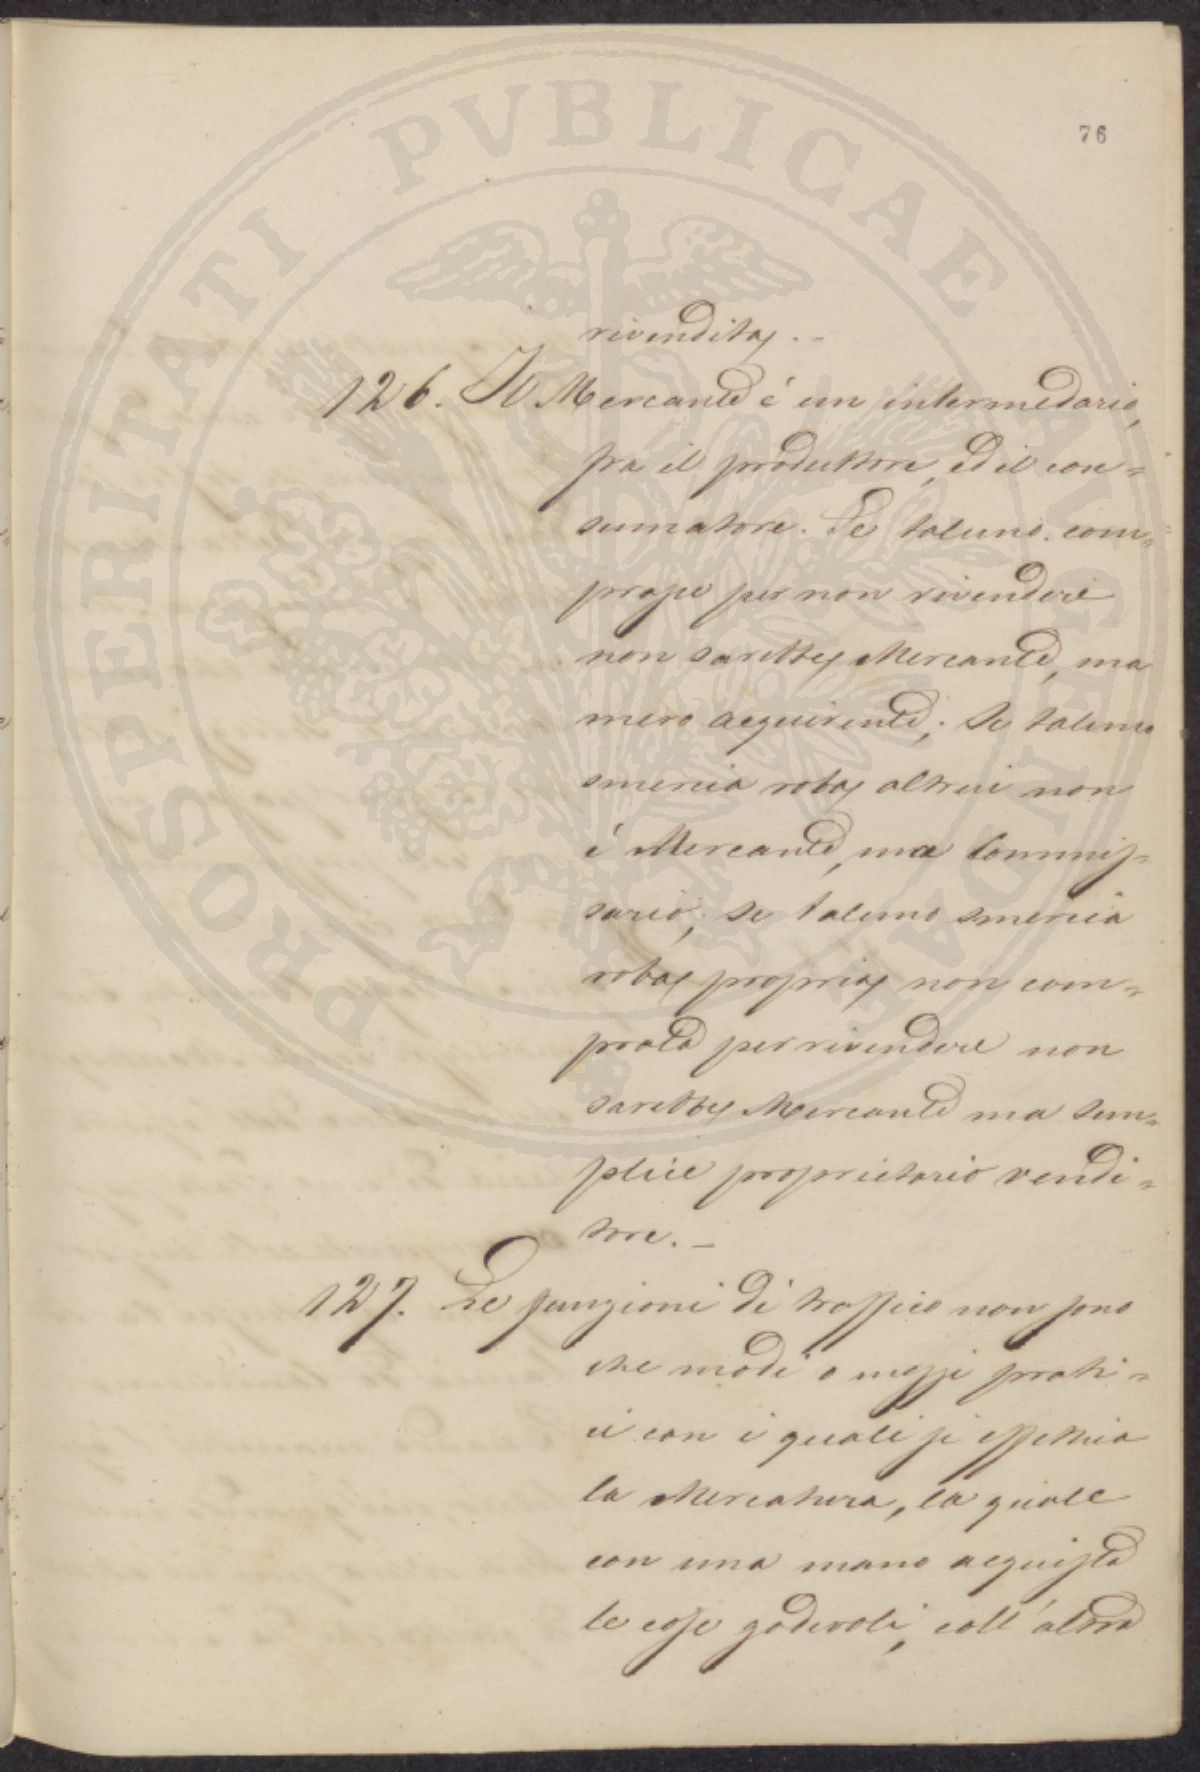 76
rivendita. -
126. Il Mercante é un intermedario,
fra il produttore, ed il con=
sumatore. Se taluno com=
prasse per non rivendere
non sarebbe Mercante, ma
mero acquirente; se taluno
smercia roba altrui non
é Mercante, ma Commis=
sario; se taluno smercia
roba propria non com=
prata per rivendere non
sarebbe Mercante ma sem=
plice proprietario vendi=
tore. -
127. Le funzioni di traffico non sono
che modi o mezzi prati=
ci con i quali si effettua
la Mercatura, la quale
con una mano acquista
le cose godevoli, coll'altra
PROSPERITATI PVBLICAE AVGENDAE